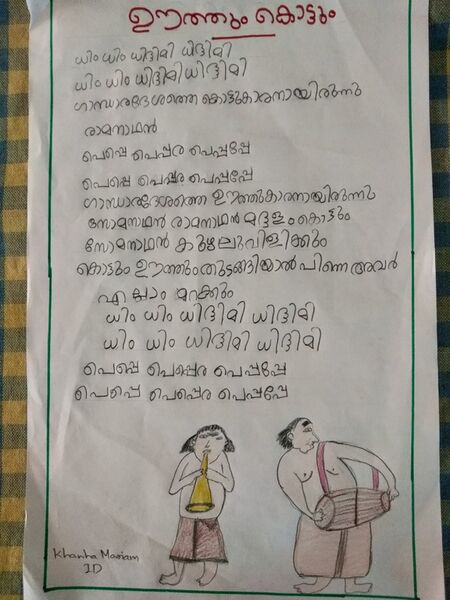 ഊത്തും കൊട്ടും
ധിം ധിം ധിദ്ദിമി ധിദ്ദിമി
ധിം ധിം ധിദ്ദിമി ധിദ്ദിമി
ഗാന്ധാരദേശത്തെ കൊട്ടുകാരനായിരുന്നു
രാമനാഥൻ
പെപ്പെ പെപ്പര പെപ്പപ്പേ
പെപ്പെ പെപ്പര പെപ്പപ്പേ
ഗാന്ധാരദേശത്തെ ഊത്തുകാരനായിരുന്നു
സോമനാഥൻ രാമനാഥൻ മദ്ദളം കൊട്ടും
സോമനാഥൻ കുഴലുവിളിക്കും
കൊട്ടും ഊത്തും തുടങ്ങിയാൽ പിന്നെ അവർ
എല്ലാം മറക്കും
ധിം ധിം ധിദ്ദിമി ധിദ്ദിമി
ധിം ധിം ധിദ്ദിമി ധിദ്ദിമി
പെപ്പെ പെപ്പെര പെപ്പപ്പേ
പെപ്പെ പെപ്പെര പെപ്പപ്പേ
Khanha Mariam
1D